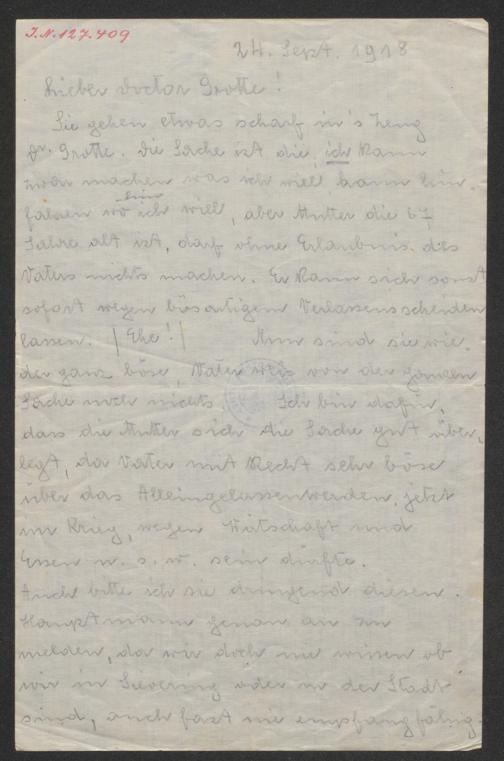 I.N. 127.409
24. Sept. 1918
Lieber Doctor Grotte!
Sie gehen etwas scharf in's Zeug
Dr. Grotte. Die Sache ist die, ich kann
zwar machen was ich will, kann hin-
fahren wo hin ich will, aber Mutter die 67
Jahre alt ist, darf ohne Erlaubnis des
Vaters nichts machen. Er kann sich sonst
sofort wegen bösartigem Verlassens scheiden
lassen. | Ehe! | Nun sind sie wie-
der ganz böse, Vater weis von der ganzen
Sache noch nichts. Ich bin dafür,
dass die Mutter sich die Sache gut über-
legt, da Vater mit Recht sehr böse
über das Alleingelassenwerden, jetzt
im Krieg, wegen Wirtschaft und
Essen u. s. w. sein dürfte.
Auch bitte ich sie dringend diesen
Hauptmann genau an zu
melden, da wir doch nie wissen ob
wir in Sievering oder in der Stadt
sind, auch fast nie empfangfähig